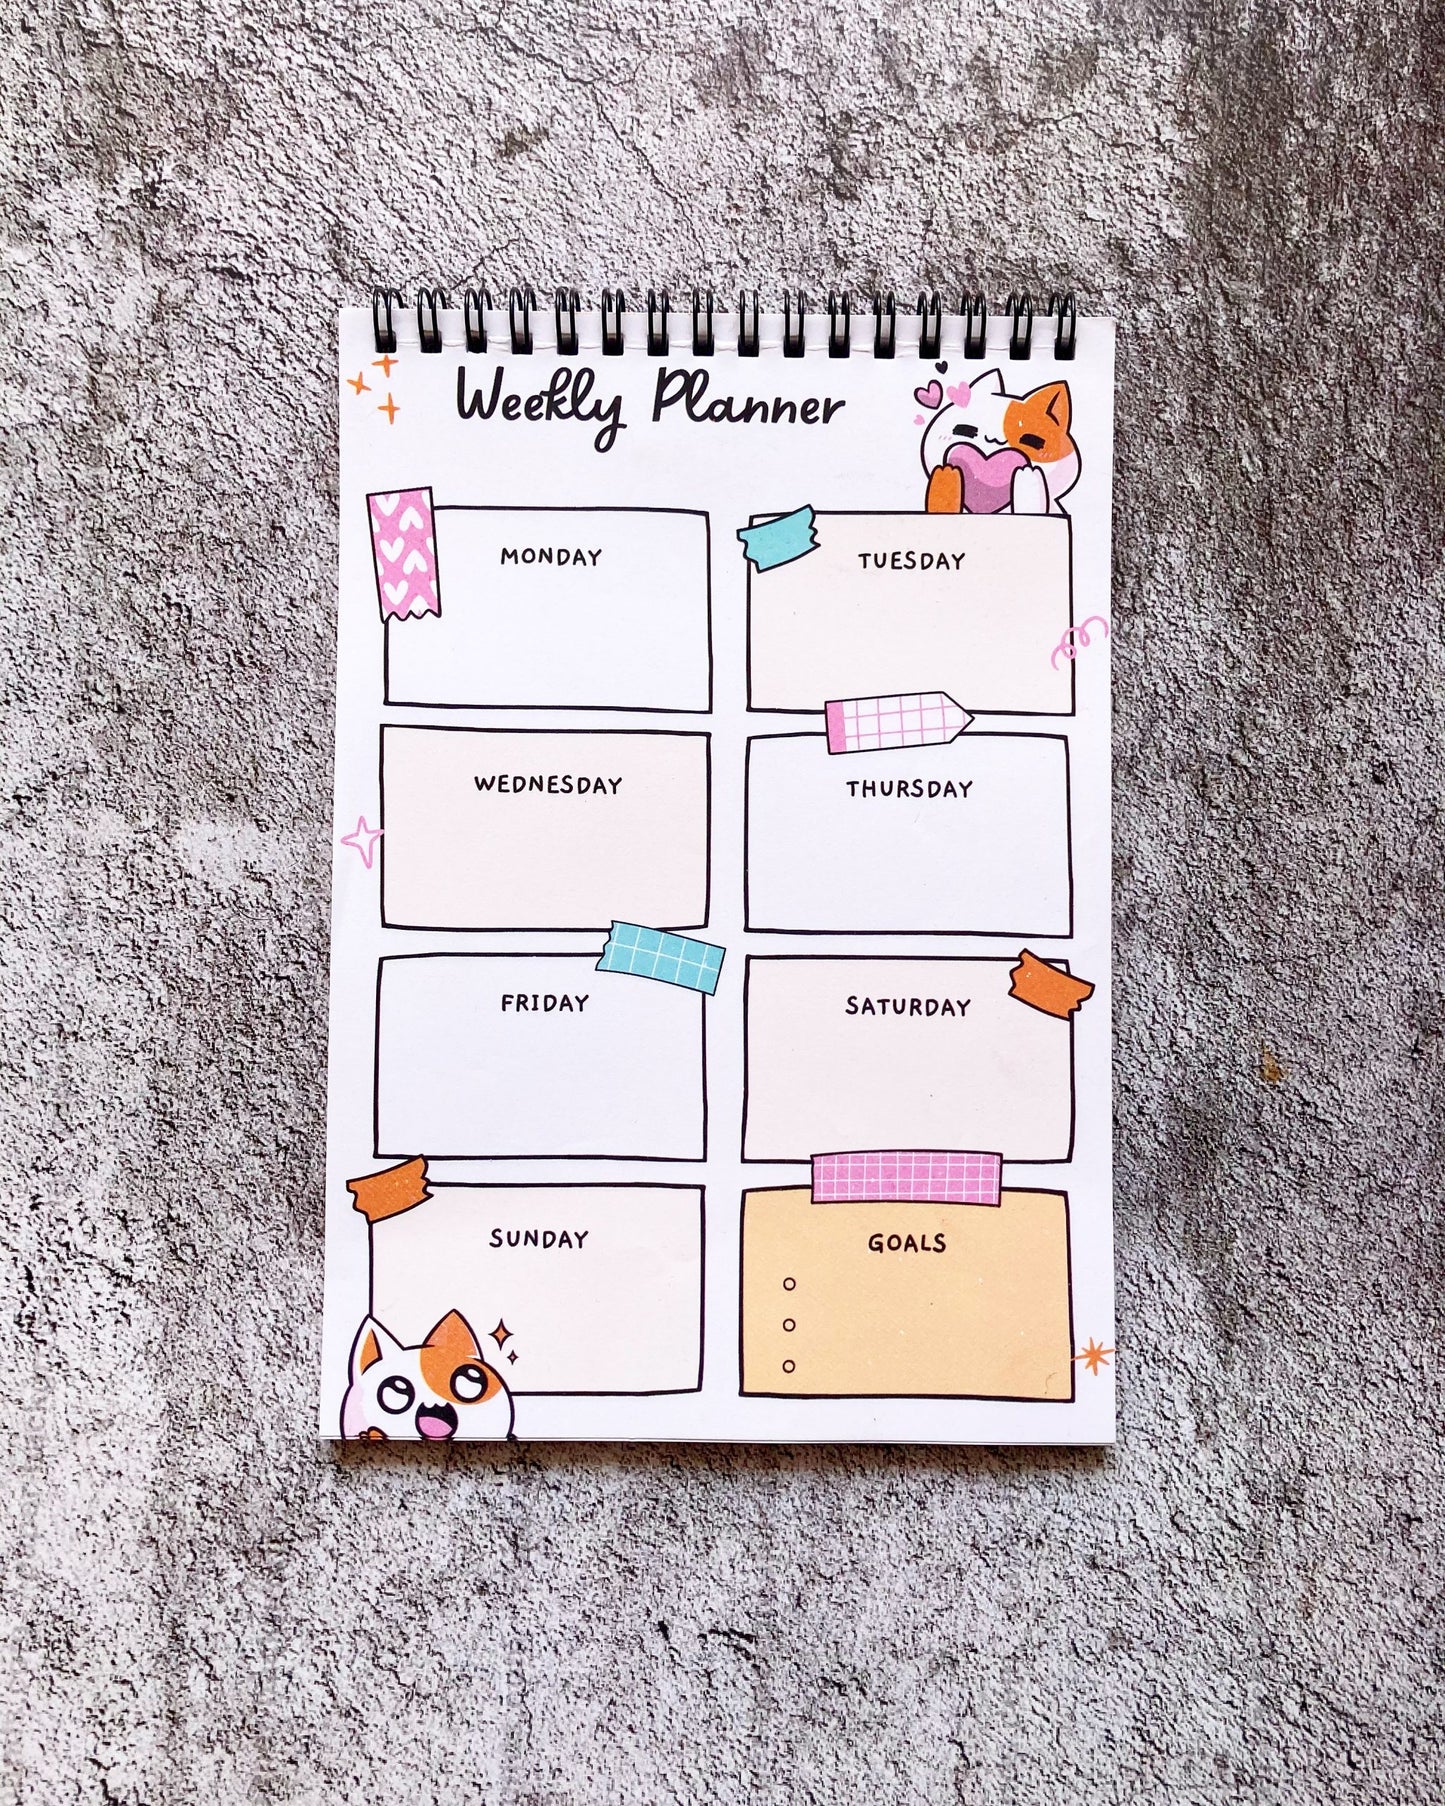 Weekly Planner
MONDAY
TUESDAY
WEDNESDAY
THURSDAY
FRIDAY
SATURDAY
SUNDAY
GOALS